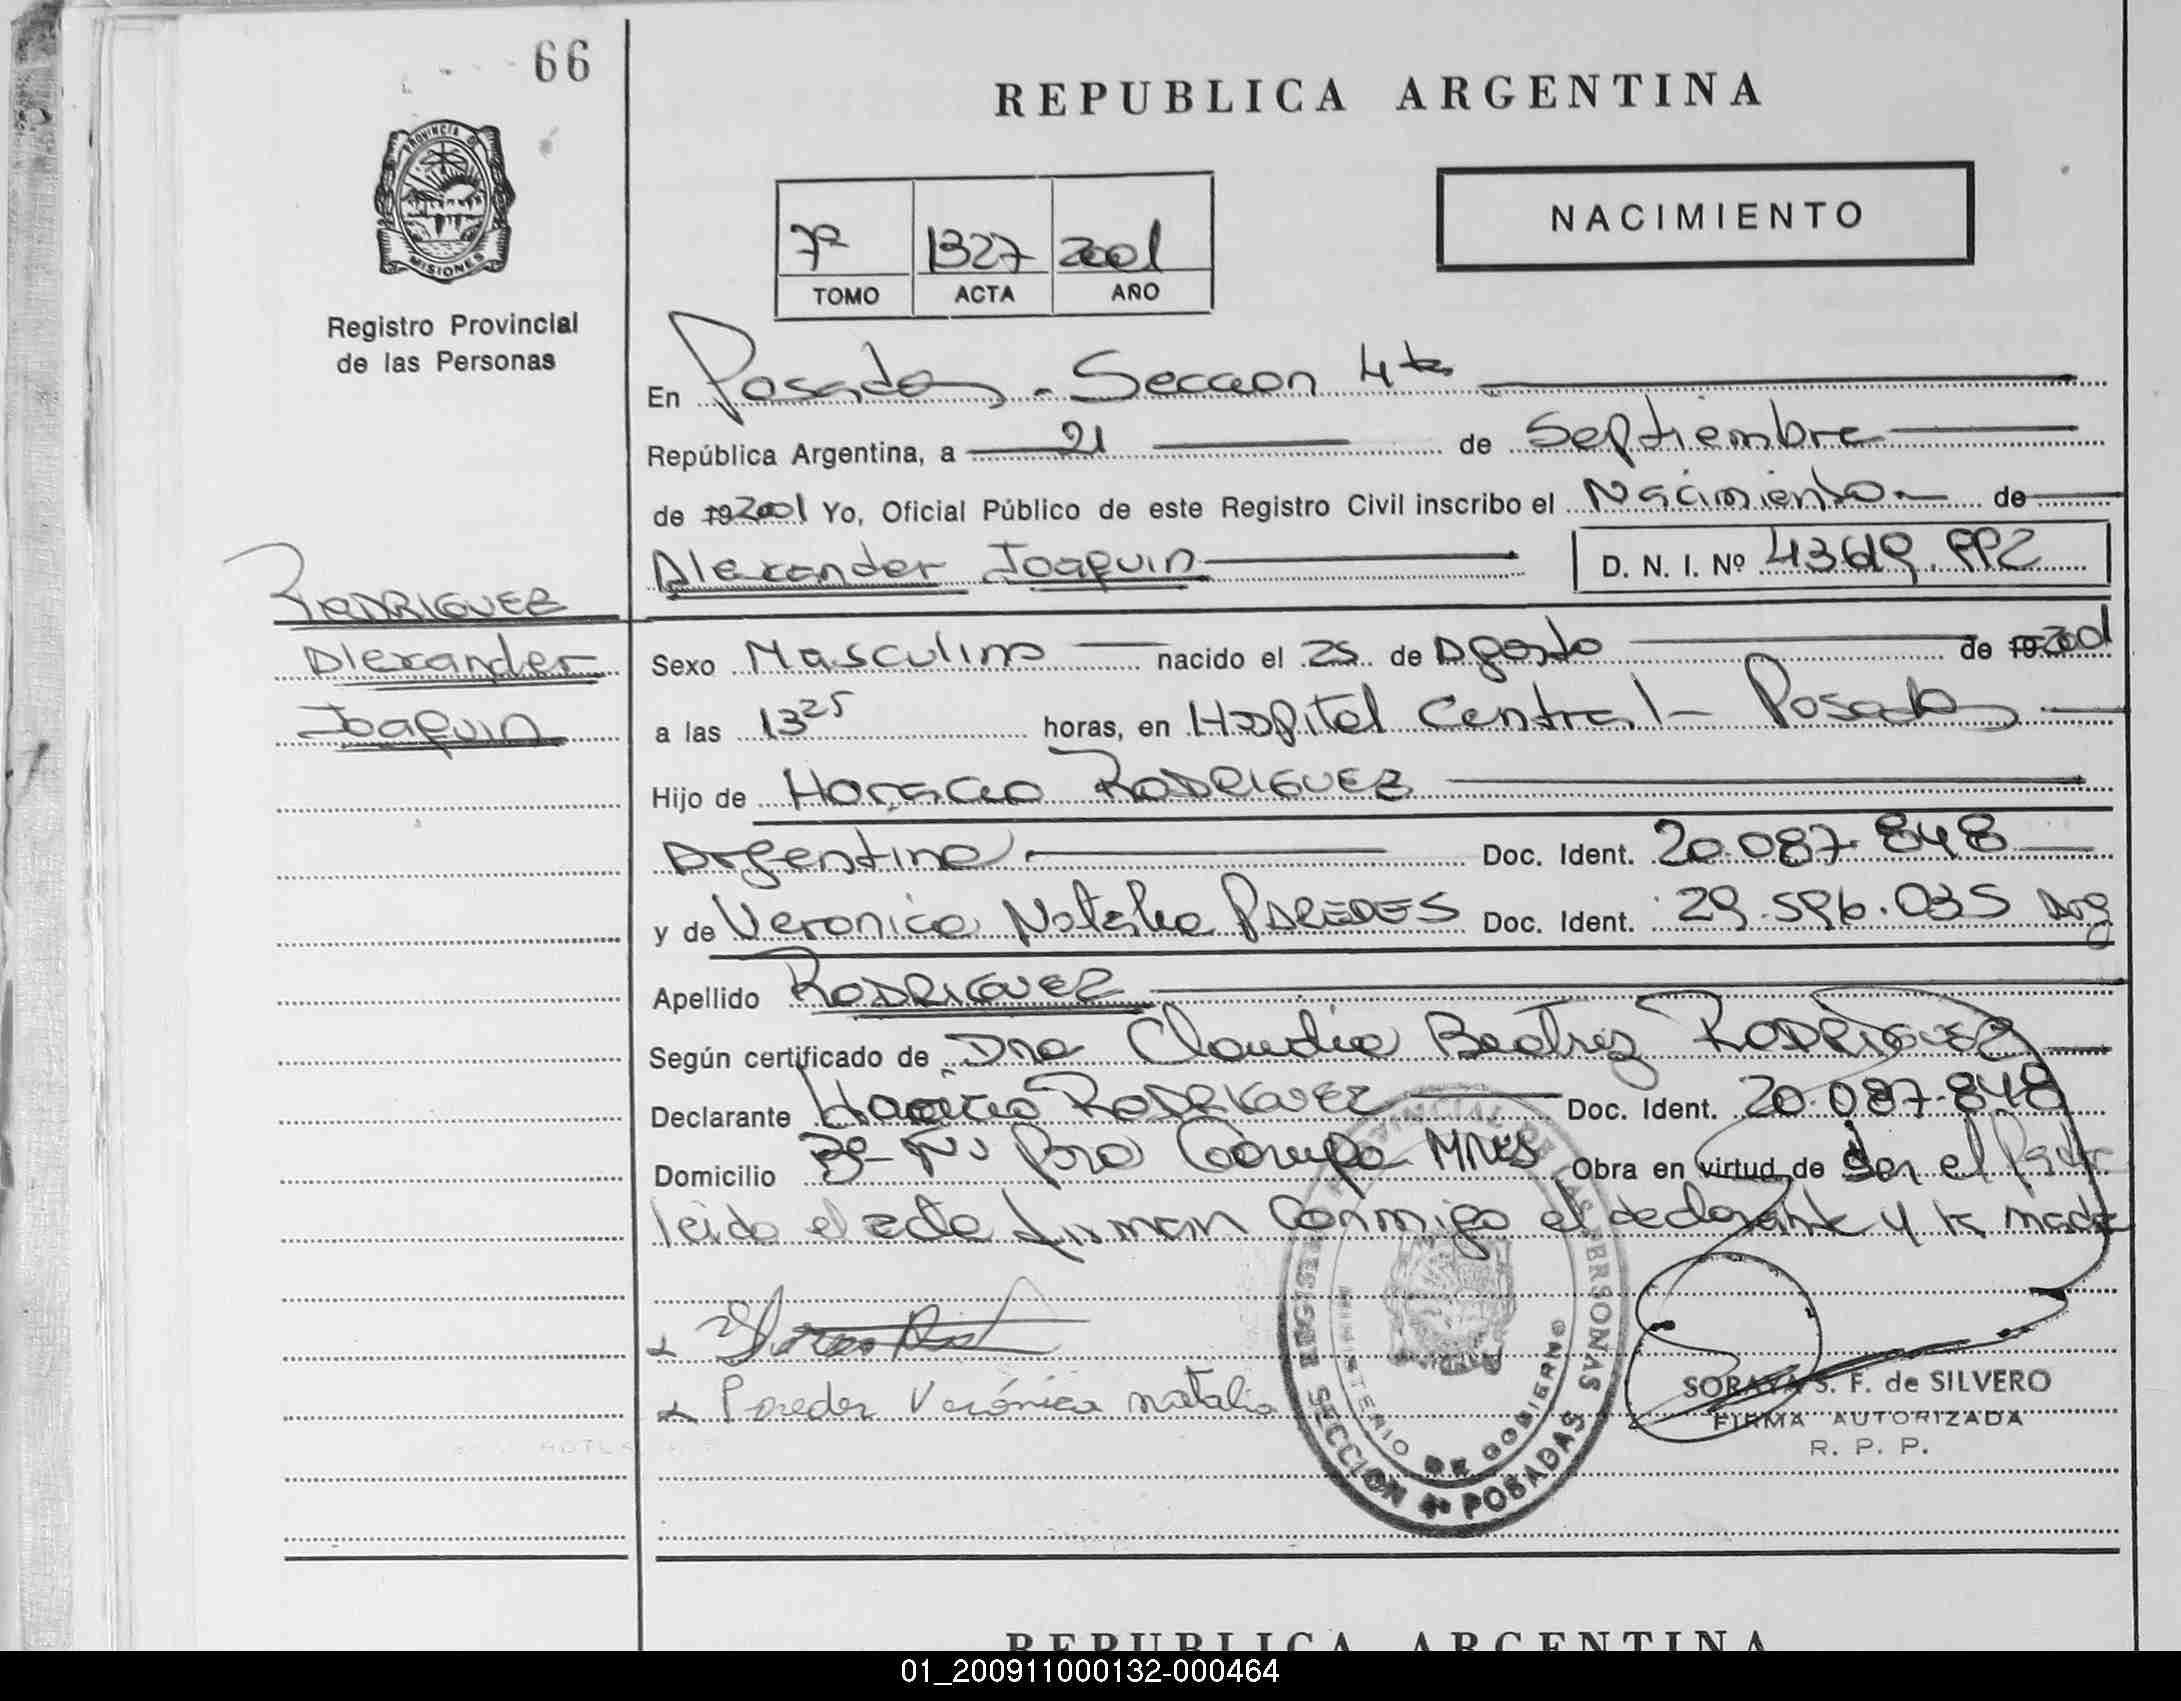 66
REPUBLICA ARGENTINA
PROVINCIA D
MISIONES
Registro Provincial
de las Personas
NACIMIENTO
7º 1327 2001
TOMO ACTA AÑO
En Posadas - Seccion 4ta
República Argentina, a 21 de Septiembre
de 19 2001 Yo, Oficial Público de este Registro Civil inscribo el Nacimiento de
Alexander Joaquin D. N. I. Nº
RODRIGUEZ
Alexander
Joaquin
Sexo Masculino nacido el 25 de Agosto de 19 2001
a las 13 25 horas, en Hospital Central - Posadas
Hijo de Horacio RODRIGUEZ
Argentino Doc. Ident. 20.087.848
y de Veronica Natalia PAREDES Doc. Ident. 29.596.035 Arg
Apellido RODRIGUEZ
Según certificado de Dra Claudia Beatriz RODRIGUEZ
Declarante Horacio RODRIGUEZ Doc. Ident. 20.087.848
Domicilio Bro Garupa MNES Obra en virtud de ser el Padre
leido el acta firman conmigo el declarante y la madre
Paredes Verónica natalia
SORAYA S. F. de SILVERO
FIRMA AUTORIZADA
R. P. P.
REGISTRO PROVINCIAL DE LAS PERSONAS
MINISTERIO DE GOBIERNO
SECCION 4ª POSADAS
REPUBLICA ARGENTINA
01_200911000132-000464